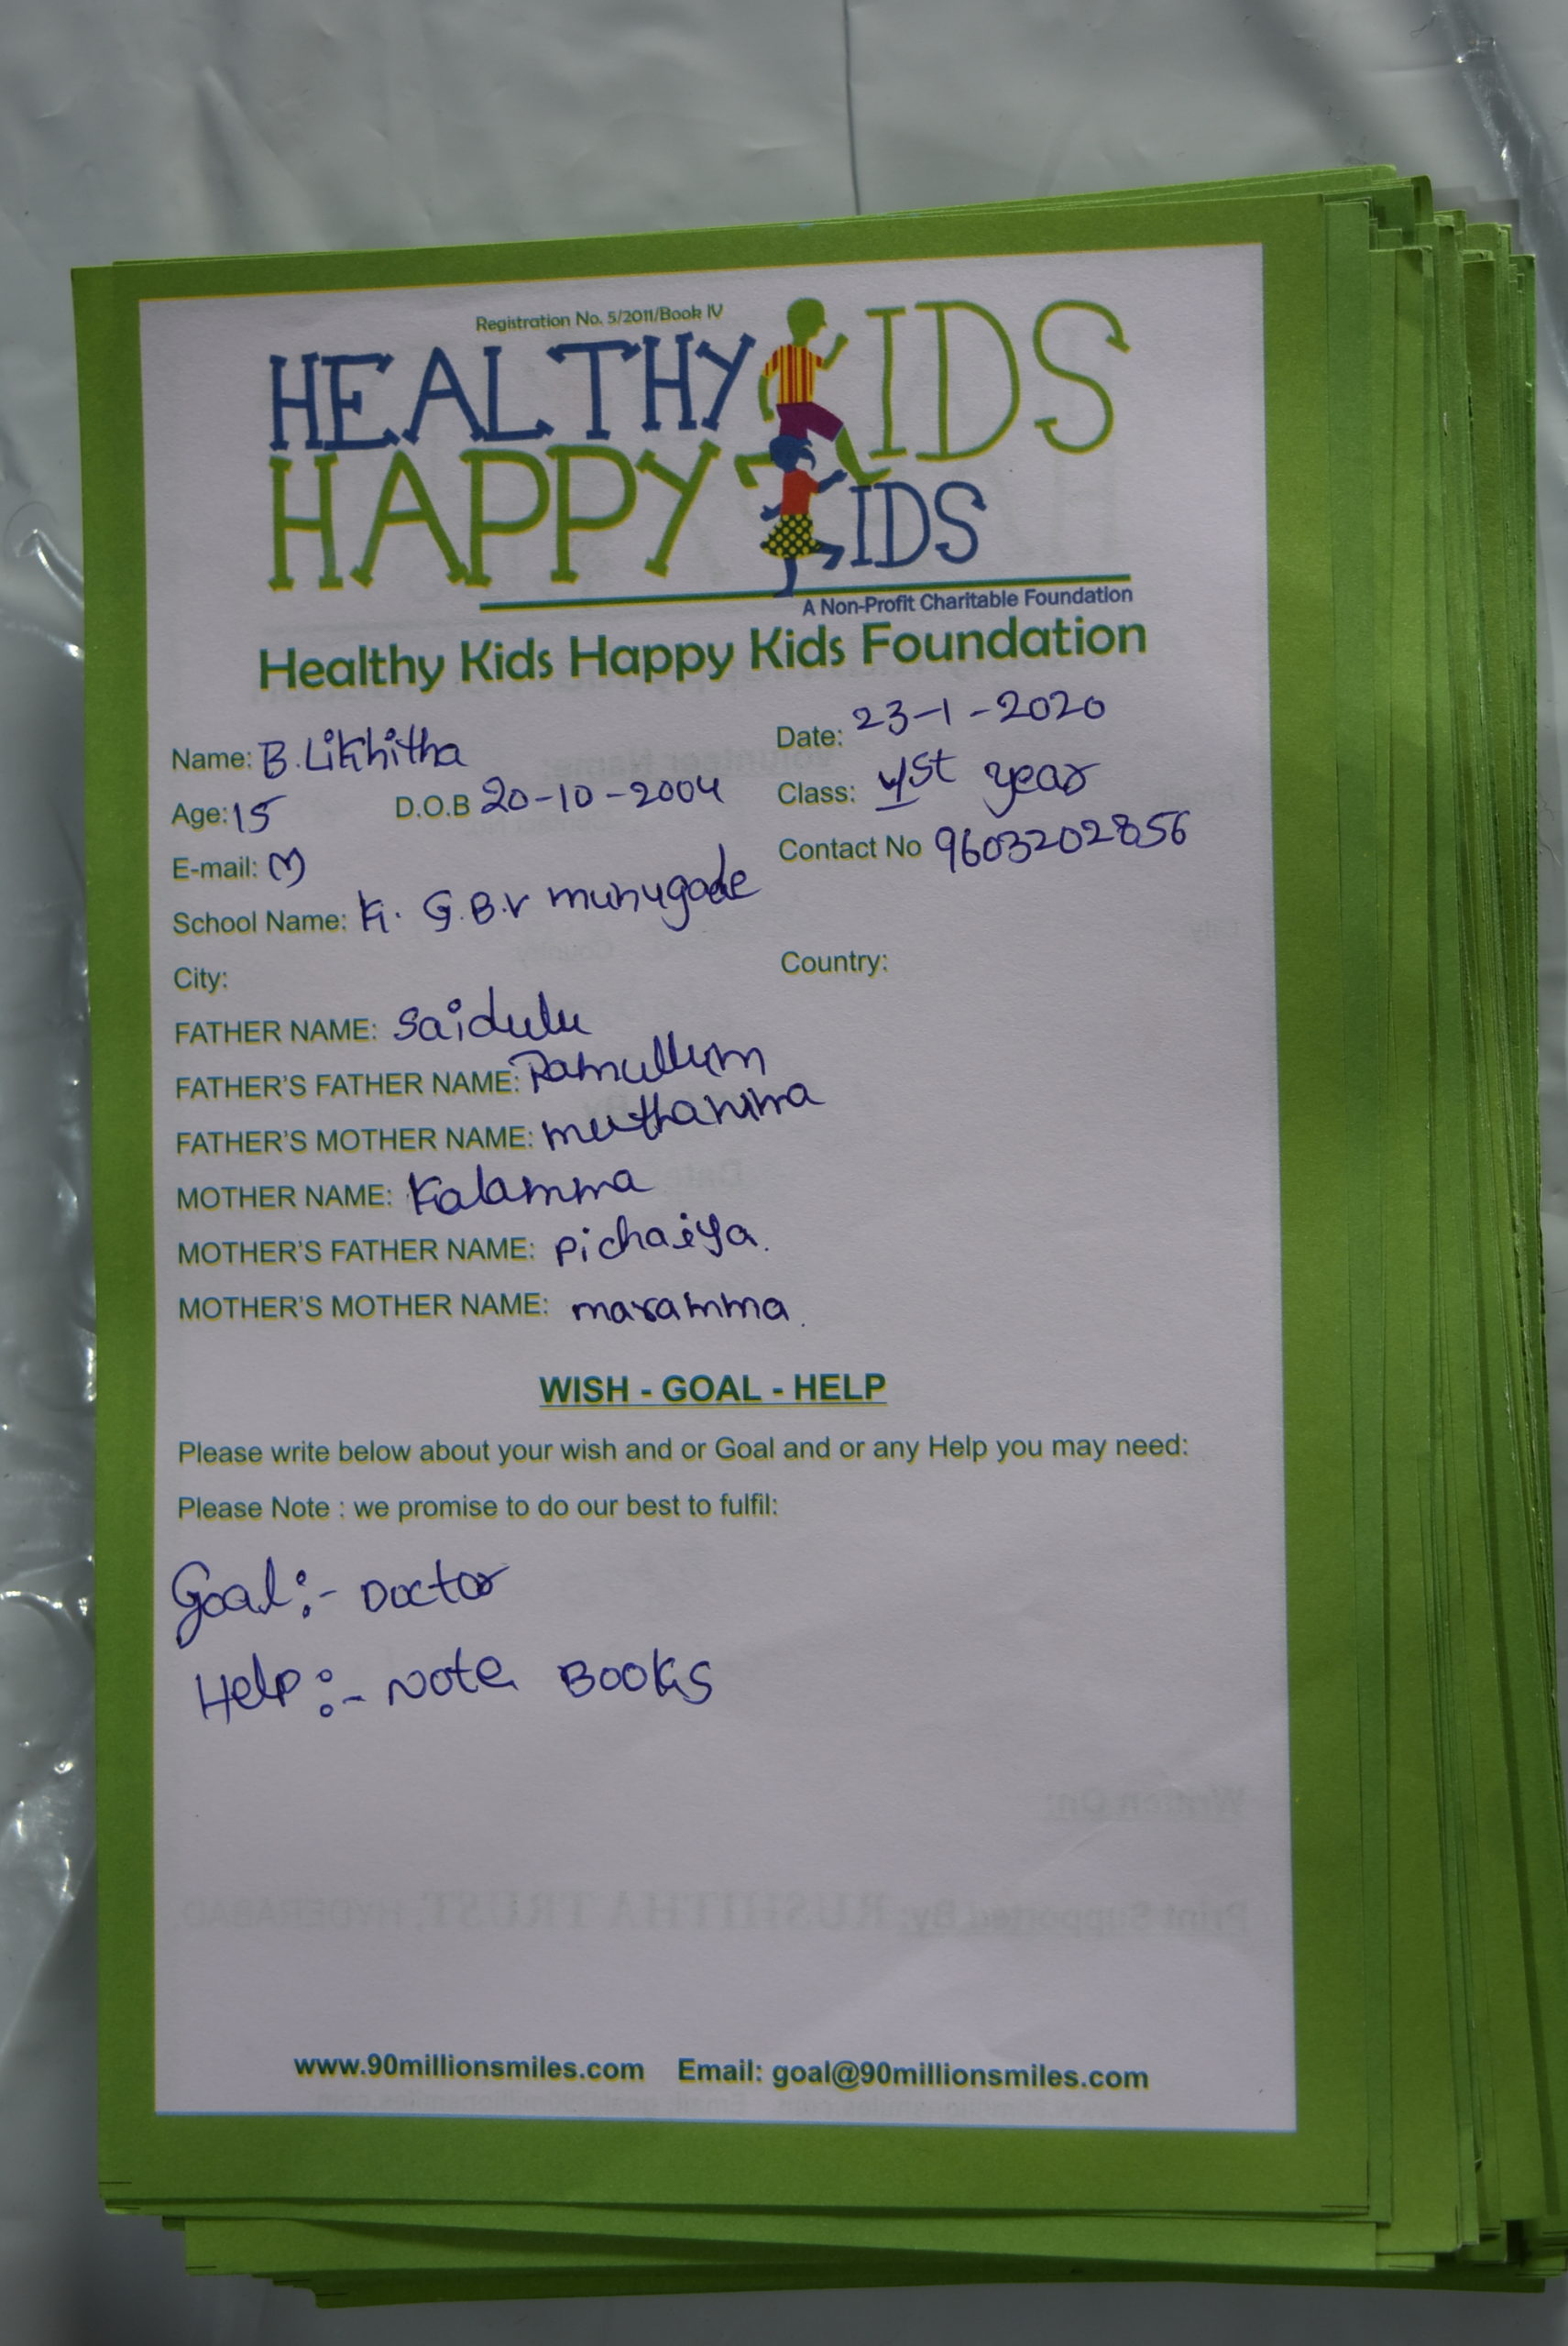 Registration No. 5/2011/Book IV
HEALTHY KIDS
HAPPY KIDS
A Non-Profit Charitable Foundation
Healthy Kids Happy Kids Foundation
Name: B. Likhitha Date: 23-1-2020
Age: 15 D.O.B 20-10-2004 Class: 1st year
E-mail: Contact No 9603202856
School Name: K. G.B.V munugode
City: Country:
FATHER NAME: Saidulu
FATHER'S FATHER NAME:
FATHER'S MOTHER NAME: muthamma
MOTHER NAME: Kalamma
MOTHER'S FATHER NAME: pichaiya.
MOTHER'S MOTHER NAME: maramma.
WISH - GOAL - HELP
Please write below about your wish and or Goal and or any Help you may need:
Please Note : we promise to do our best to fulfil:
Goal:- Doctor
Help:- Note Books
www.90millionsmiles.com Email: goal@90millionsmiles.com